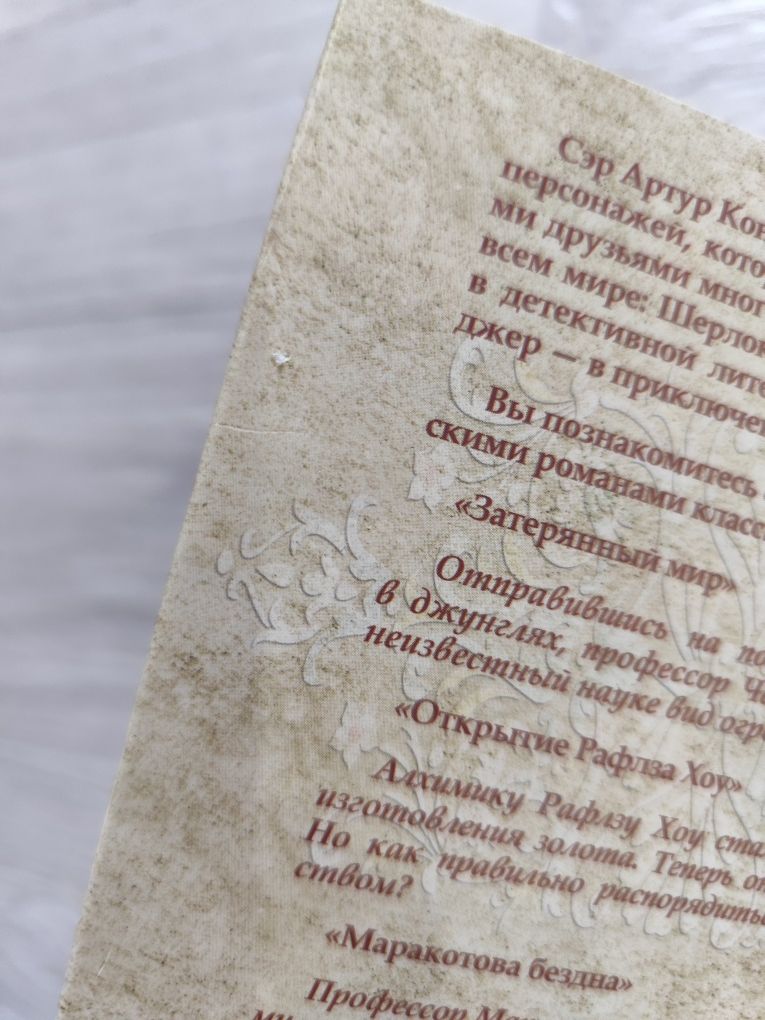 Сэр Артур Кон
персонажей, кото
ми друзьями мног
всем мире: Шерлок
в детективной лите
джер – в приключен
Вы познакомитесь
скими романами класс
«Затерянный мир»
Отправившись на по
в джунглях, профессор Че
неизвестный науке вид огро
«Открытие Рафлза Хоу»
Алхимику Рафлзу Хоу ста
изготовления золота. Теперь он
Но как правильно распорядить
ством?
«Маракотова бездна»
Профессор Мар
ми